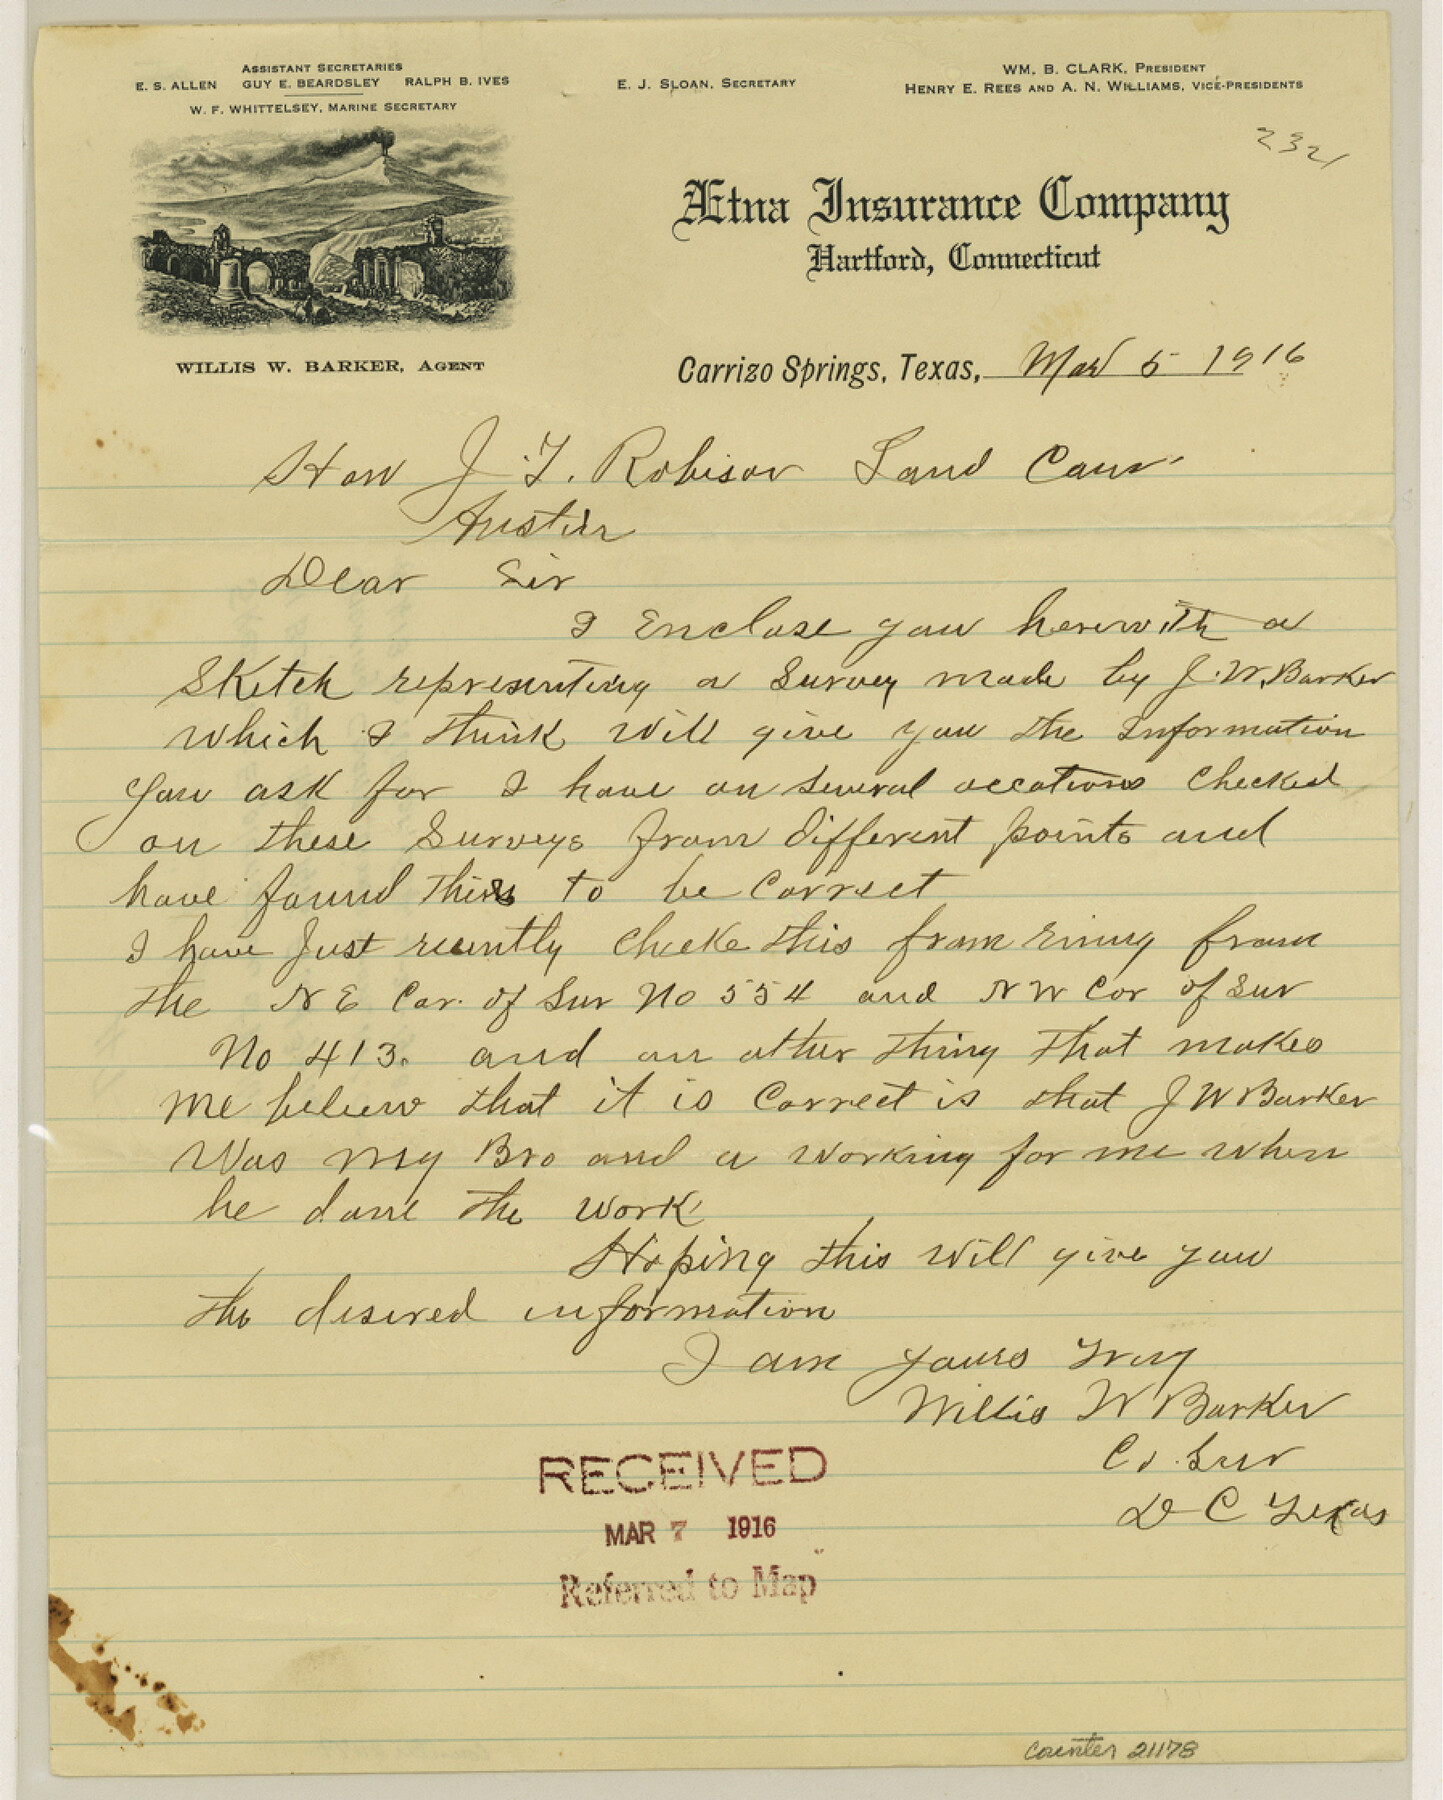 ASSISTANT SECRETARIES
E. S. ALLEN GUY E. BEARDSLEY RALPH B. IVES
W. F. WHITTELSEY, MARINE SECRETARY
E. J. SLOAN, SECRETARY
WM. B. CLARK, PRESIDENT
HENRY E. REES AND A. N. WILLIAMS, VICE-PRESIDENTS
2321
Ætna Insurance Company
Hartford, Connecticut
WILLIS W. BARKER, AGENT
Carrizo Springs, Texas, Mar 5 1916
Hon J. T. Robison Land Com
Austin
Dear Sir
I Enclose you herewith a
Sketch representing a Survey made by J. W. Barker
which I think will give you the Information
you ask for I have on several occations Checked
on these Surveys from different points and
have found this to be Correct
I have Just recently checke this from runing from
the N E Cor. of Sur No 554 and N W Cor of Sur
No 413. and an other thing that makes
me believe that it is Correct is that J W Barker
Was my Bro and a working for me when
he done the work
Hoping this will give you
the desired information
I am yours Truly
Willis W Barker
Co. Sur
D C Texas
RECEIVED
MAR 7 1916
Referred to Map
Counter 21178